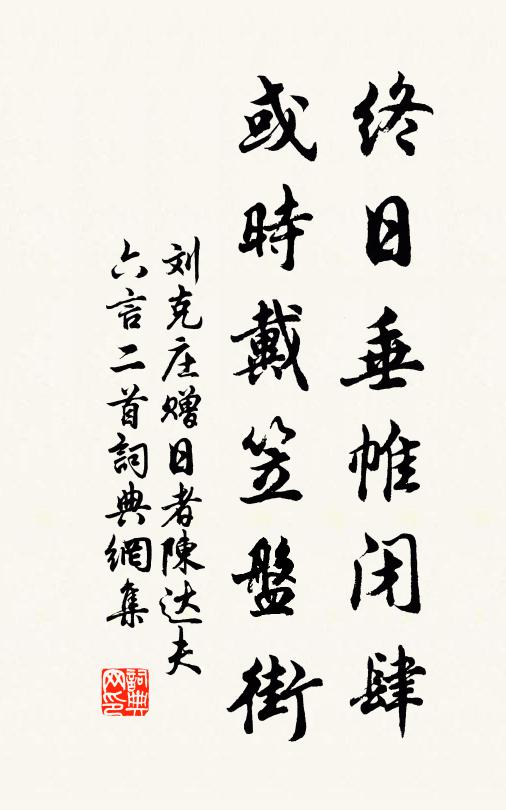 终日垂帷闭肆
或時戴笠盤街
刘克庄赠日者陳达夫
六言二首詞典網集
詞典网印